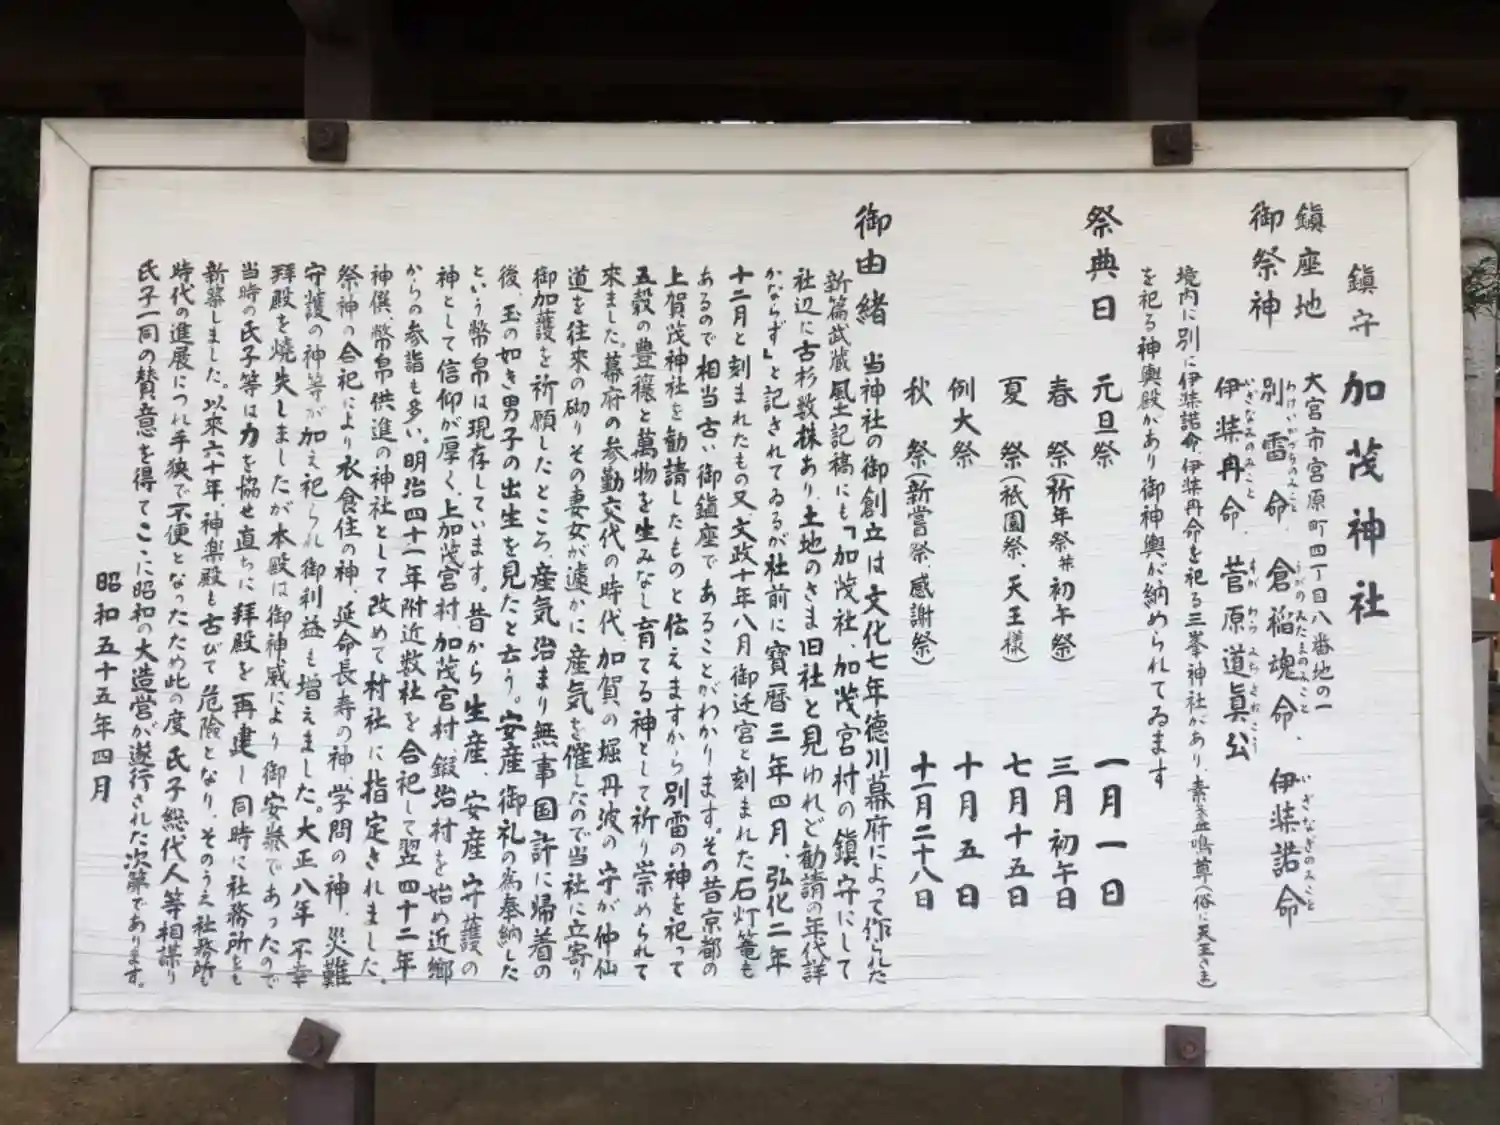 鎮守 加茂神社
鎮座地 大宮市宮原町四丁目八番地の一
御祭神 別雷命、倉稲魂命、伊弉諾命
わけいかづちのみこと うがのみたまのみこと いざなぎのみこと
伊弉冉命、菅原道眞公
いざなみのみこと すがわらみちざねこう
境内に別に伊弉諾命、伊弉冉命を祀る三峯神社があり、素盞嗚尊(俗に天王さま)
を祀る神輿殿があり御神輿が納められてゐます
祭典日 元旦祭 一月一日
春祭(祈年祭並初午祭) 三月初午日
夏祭(祇園祭、天王様) 七月十五日
例大祭 十月五日
秋祭(新嘗祭、感謝祭) 十一月二十八日
御由緒 当神社の御創立は文化七年德川幕府によって作られた
新篇武蔵風土記稿にも「加茂社、加茂宮村の鎮守にして
社辺に古杉数株あり、土地のさま旧社と見ゆれど勧請の年代詳
かならず」と記されてゐるが社前に寶暦三年四月、弘化二年
十二月と刻まれたもの又文政十年八月御迁宮と刻まれた石灯篭も
あるので相当古い御鎮座であることがわかります。その昔京都の
上賀茂神社を勧請したものと伝えますから別雷の神を祀って
五穀の豊穣と萬物を生みなし育てる神として祈り崇められて
來ました。幕府の参勤交代の時代、加賀の堀丹波の守が仲仙
道を往来の砌りその妻女が遽かに産気を催したので当社に立寄り
御加護を祈願したところ、産気治まり無事国許に帰着の
後、玉の如き男子の出生を見たと云う。安産御礼の為奉納した
という幣帛は現存しています。昔から生産、安産守護の
神として信仰が厚く、上加茂宮村、加茂宮村、鍛治村を始め近郷
からの参詣も多い。明治四十一年附近数社を合祀して翌四十二年
神饌、幣帛供進の神社として改めて村社に指定されました。
祭神の合祀により衣食住の神、延命長寿の神、学問の神、災難
守護の神等が加え祀られ御利益も増えました。大正八年不幸
拝殿を焼失しましたが本殿は御神威により御安泰であったので
当時の氏子等は力を協せ直ちに拝殿を再建し同時に社務所をも
新築しました。以來六十年、神楽殿も古びて危険となり、そのうえ社務所も
時代の進展につれ手狭で不便となったため此の度氏子総代人等相謀り
氏子一同の賛意を得てここに昭和の大造営が遂行された次第であります。
昭和五十五年四月